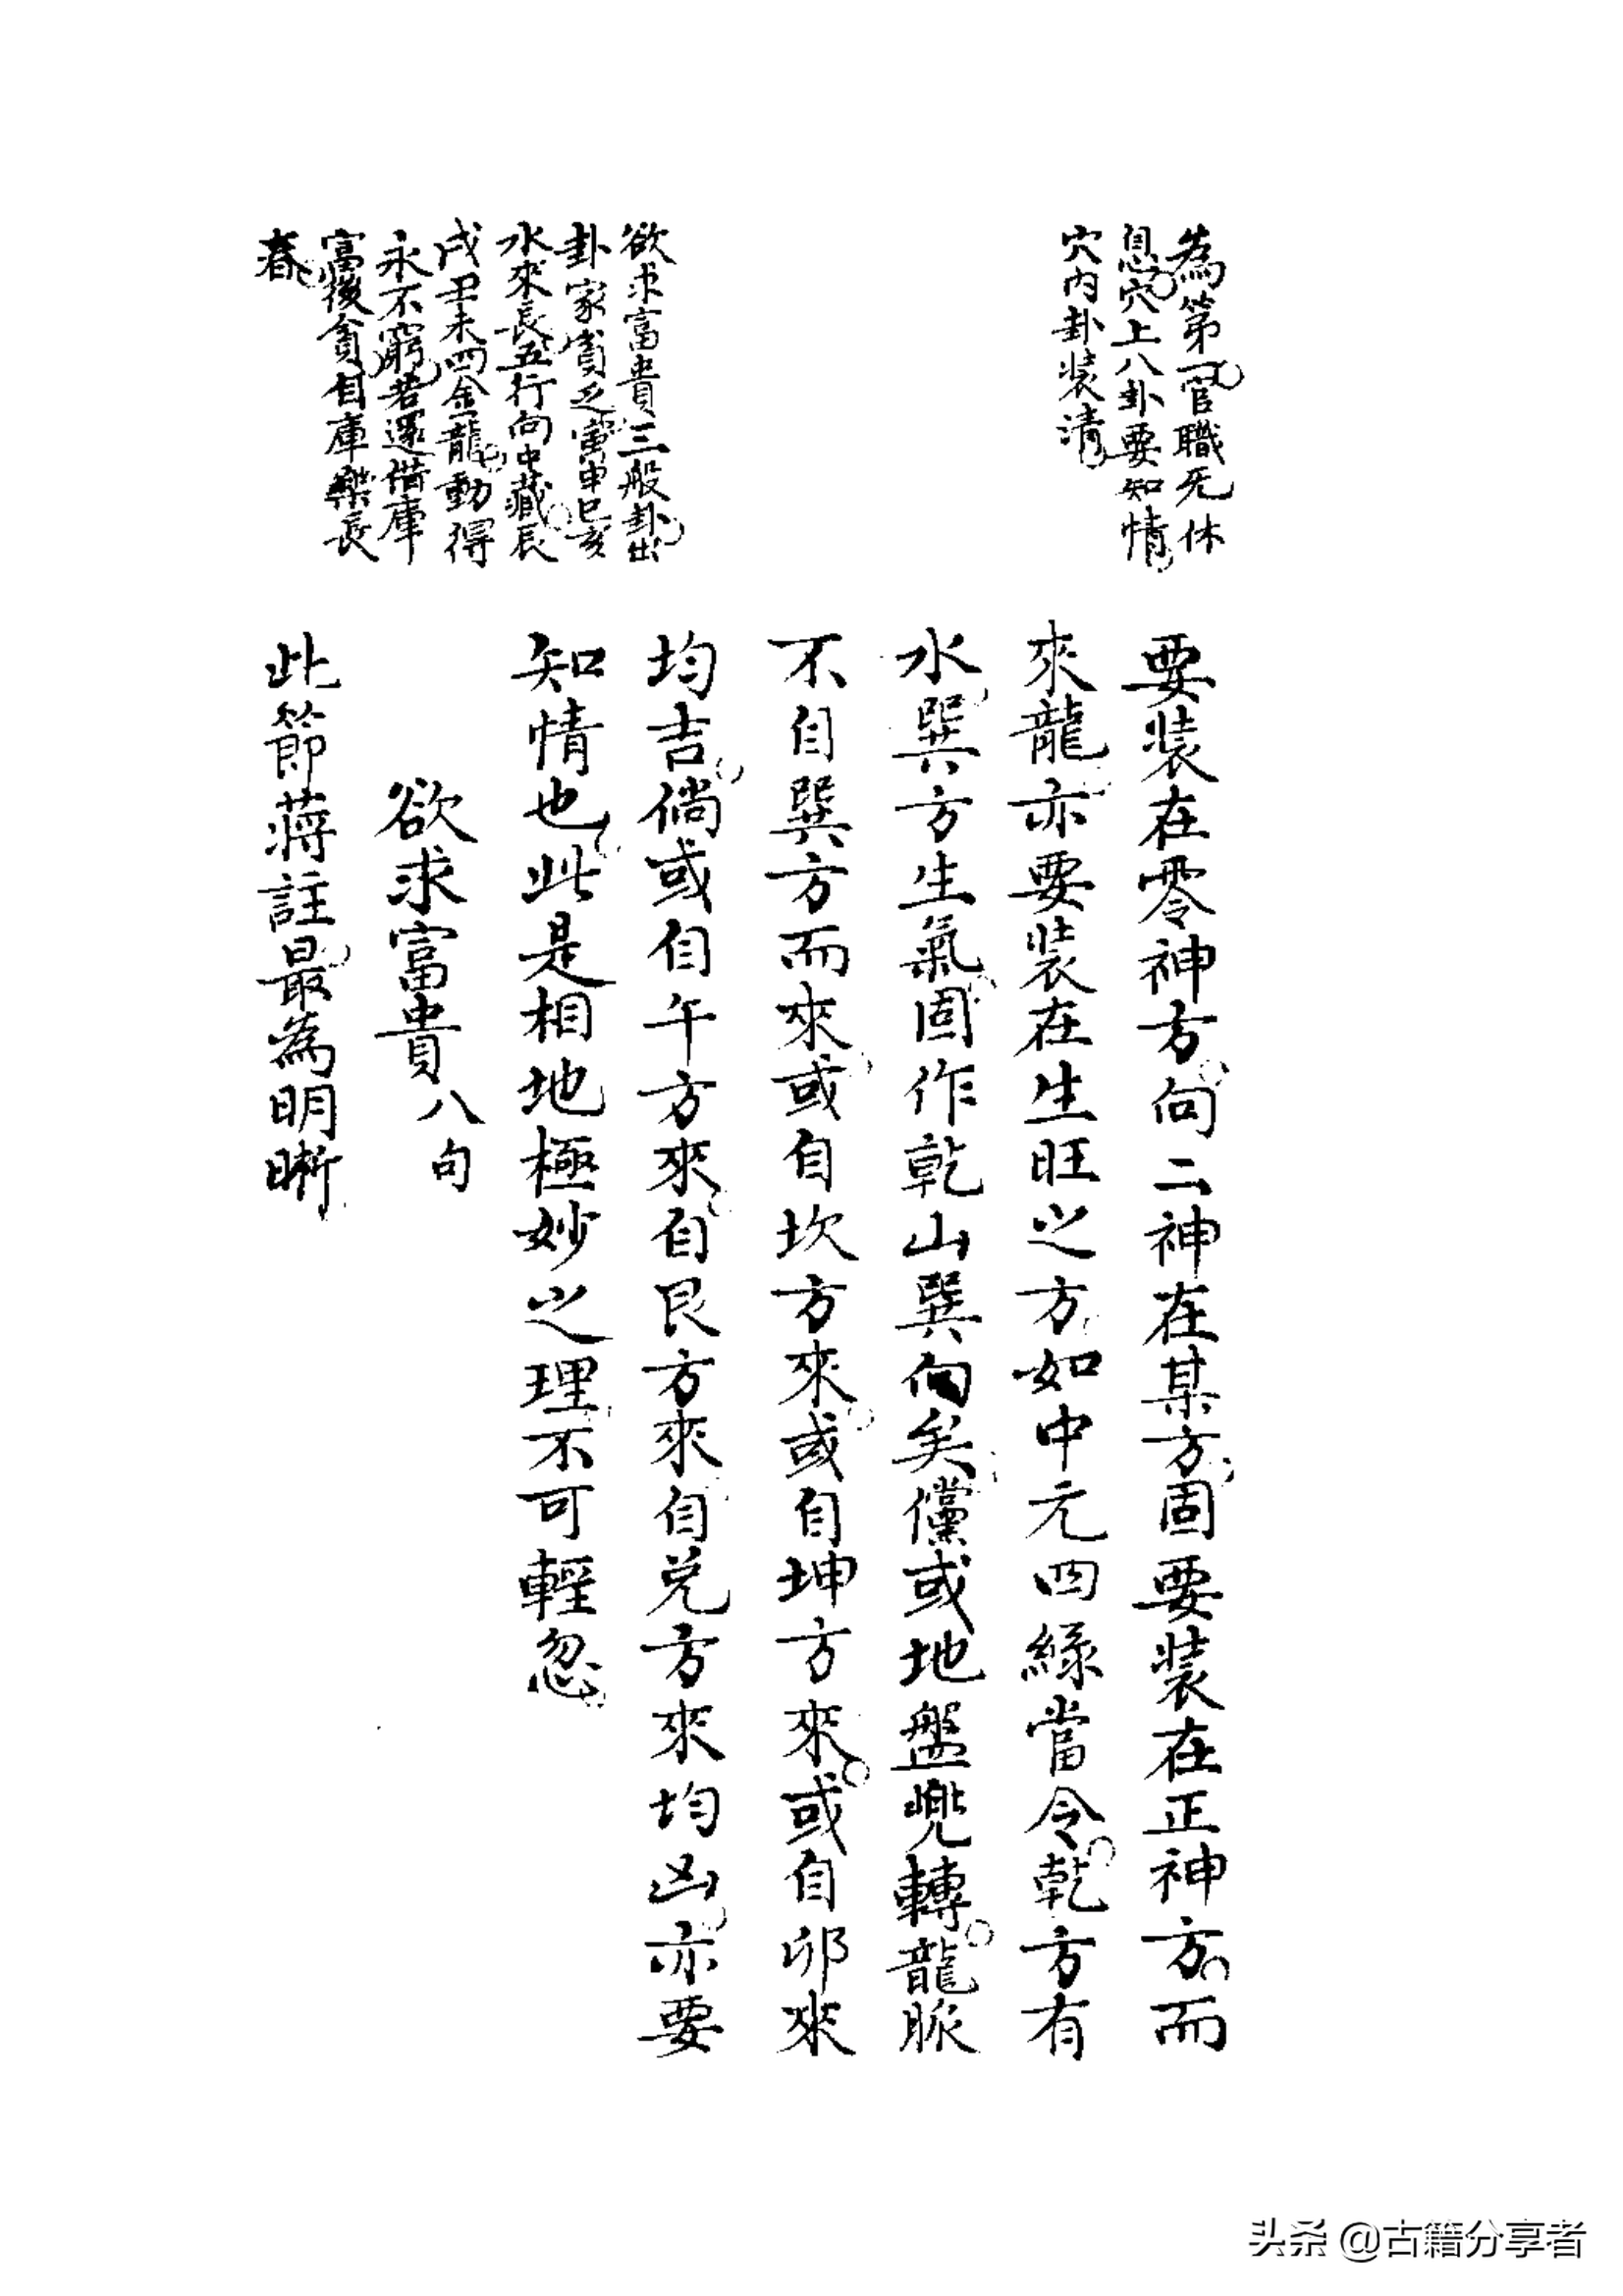 為第一官職无休
息穴上八卦要知情
穴內卦裝清
欲求富貴三般卦出
卦家貧乏寅申巳亥
水來長五行向中藏辰
戌丑未四金龍動得
永不窮若還借庫
富後貧自庫樂長
春
要裝在零神方向二神在某方固要裝在正神方而
來龍亦要裝在生旺之方如中元四綠當令乾方有
水巽方生氣固作乾山巽向矣儻或地盤兜轉龍脈
不自巽方而來或自坎方來或自坤方來或自卯來
均吉倘或自午方來自艮方來自兌方來均凶亦要
知情也此是相地極妙之理不可輕忽
欲求富貴八句
此節蔣註最為明晰
头条 @古籍分享者